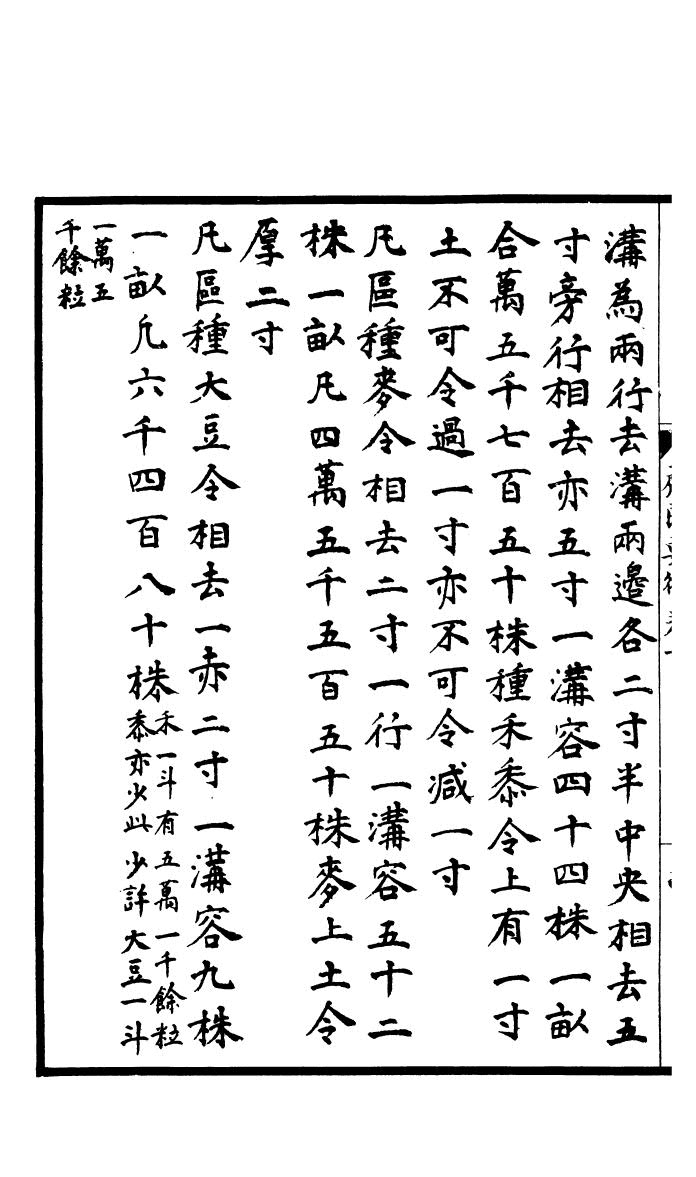 溝為兩行去溝兩邉各二寸半中央相去五
寸旁行相去亦五寸一溝容四十四株一畝
合萬五千七百五十株種禾黍令上有一寸
土不可令過一寸亦不可令减一寸
凡區種麥令相去二寸一行一溝容五十二
株一畝凡四萬五千五百五十株麥上土令
厚二寸
凡區種大豆令相去一赤二寸一溝容九株
一畝凡六千四百八十株禾一斗有五萬一千餘粒
黍亦少此少許大豆一斗
一萬五
千餘粒